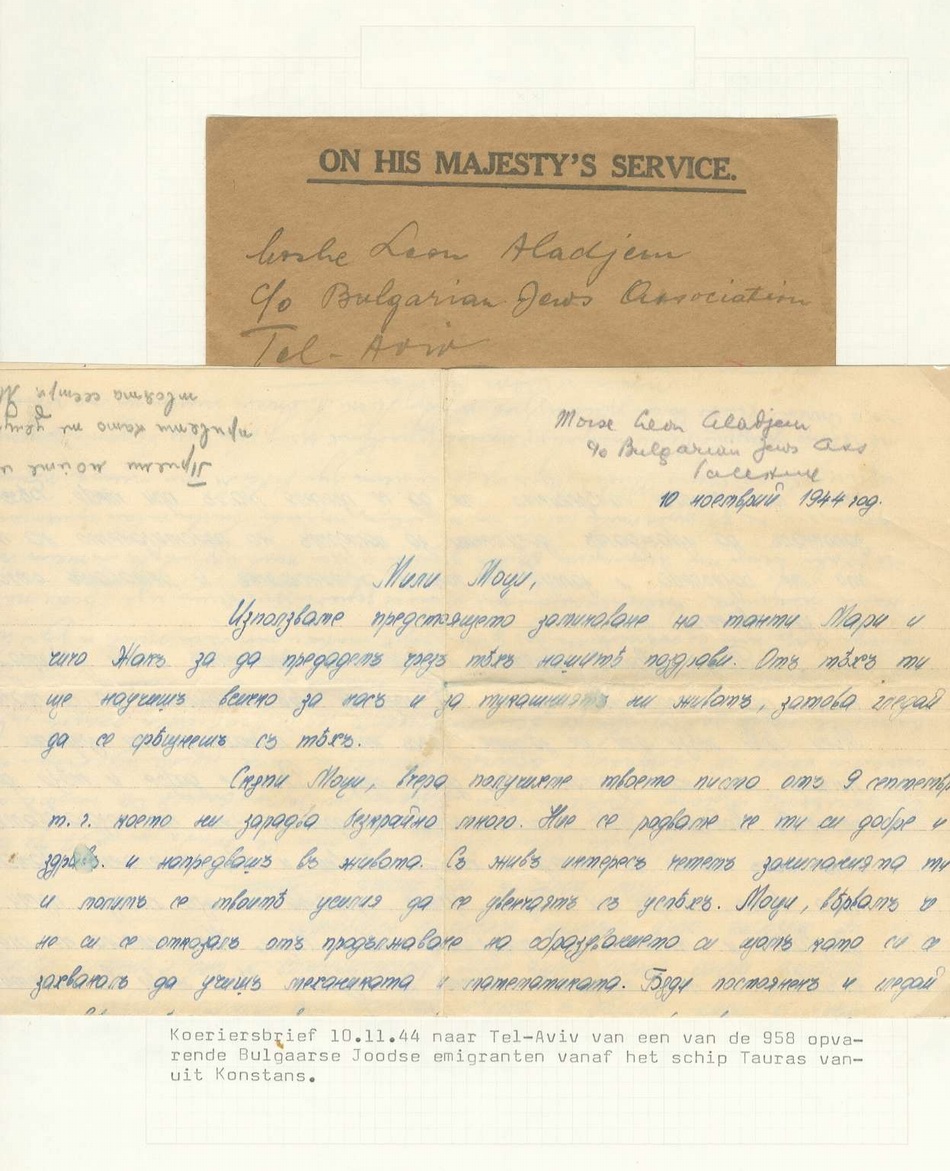 ON HIS MAJESTY'S SERVICE.
Leon Aladjem
c/o Bulgarian Jews Association
Tel-Aviv
Приеми моите
привети като те
твоята сестра
Moise Leon Aladjem
c/o Bulgarian Jews Ass
Palestine
10 ноемврий 1944 год.
Мили Моци,
Използваме предстоящето заминаване на танти Мари и
чичо Жакъ за да предадемъ чрезъ тѣхъ нашитѣ поздрави. Отъ тѣхъ ти
ще научишъ всичко за насъ и за тукашниятъ ни животъ, затова гледай
да се срѣщнешъ съ тѣхъ.
Скъпи Моци, вчера получихме твоето писмо отъ 9 септемвр
т. г. което ни зарадва безкрайно много. Ние се радваме че ти си добре и
здравъ. и напредвашъ въ живота. Съ живъ интересъ четемъ занимания та ти
и молимъ се твоитѣ усилия да се увенчаятъ съ успѣхъ. Моци, вѣрвамъ ч
не си се отказалъ отъ продължаване на образуванието си макъ като си се
захваналъ да учишъ механиката и математиката. Бѫди постояненъ и гледай
Koeriersbrief 10.11.44 naar Tel-Aviv van een van de 958 opva-
rende Bulgaarse Joodse emigranten vanaf het schip Tauras van-
uit Konstans.